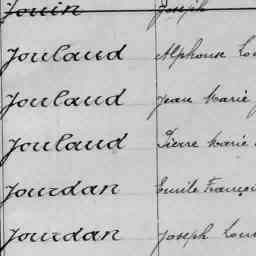 Jouin Joseph
Joulaud Alphonse Lou
Joulaud Jean Marie
Joulaud Pierre Marie
Jourdan Emile Françoi
Jourdan Joseph Loui